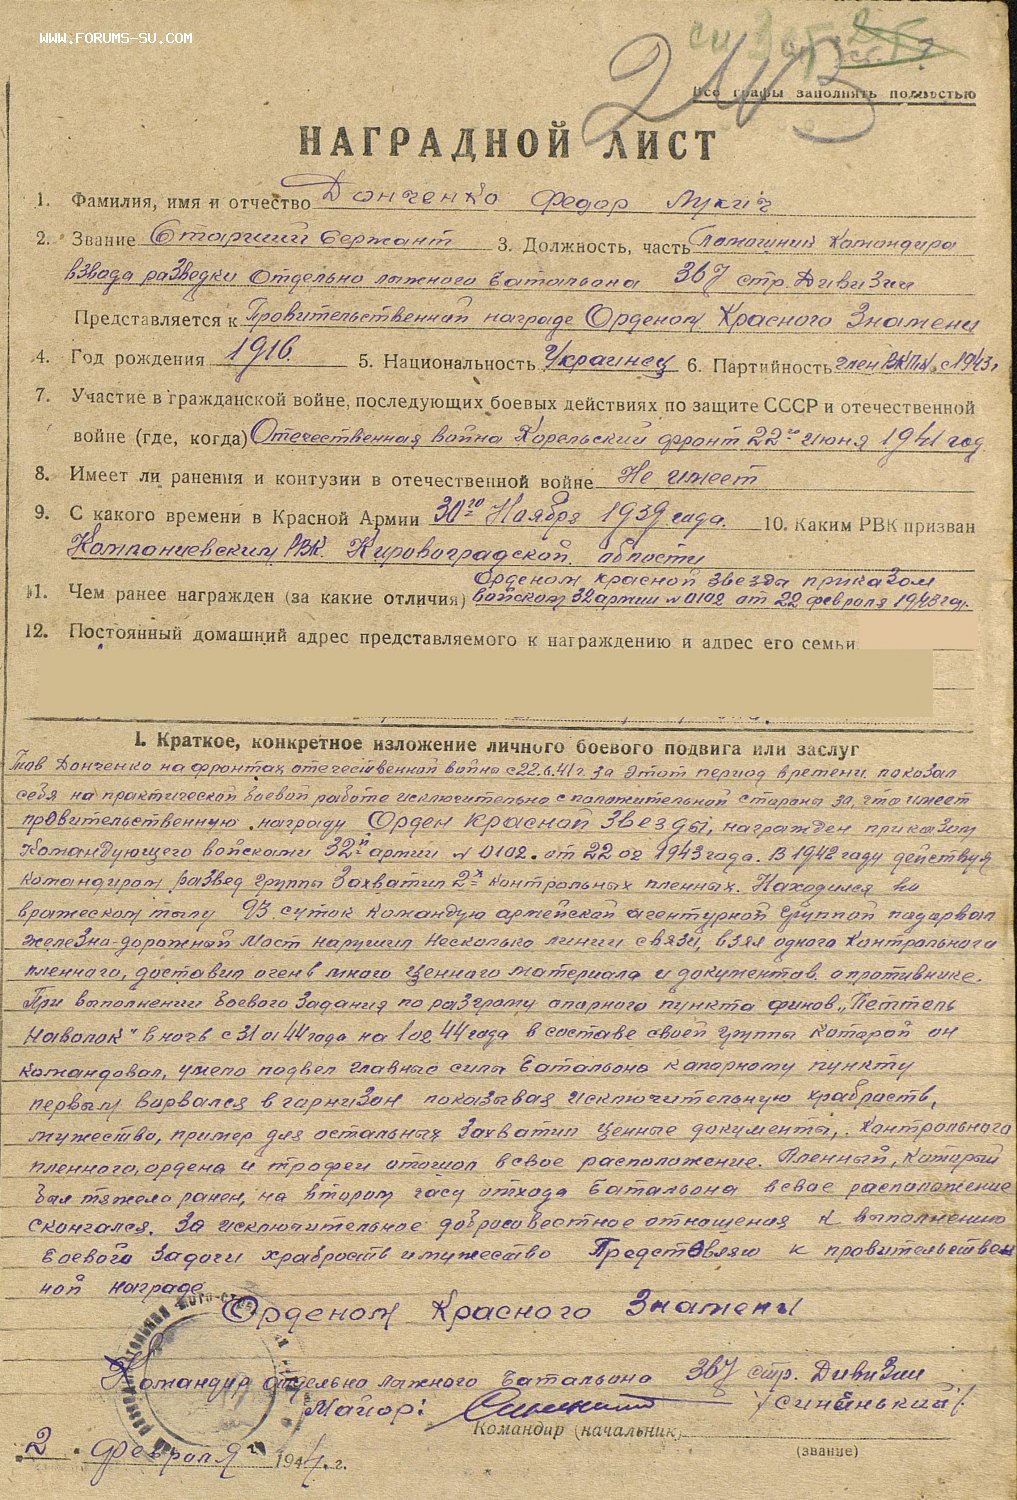 www.forums-su.com
Все графы заполнять полностью
НАГРАДНОЙ ЛИСТ
1. Фамилия, имя и отчество Донченко Федор Лукич
2. Звание Старший Сержант 3. Должность, часть Помошник Командира
взвода разведки Отдельно лыжного батальона 367 стр. Дивизии
Представляется к Провительственной награде Орденом Красного Знамени
4. Год рождения 1916. 5. Национальность Украинец 6. Партийность член ВКП(б) с 1943г
7. Участие в гражданской войне, последующих боевых действиях по защите СССР и отечественной
войне (где, когда) Отечественная война Карельский фронт 22го июня 1941 год
8. Имеет ли ранения и контузии в отечественной войне Не имеет
9. С какого времени в Красной Армии 30го Ноября 1939 года. 10. Каким РВК призван
Компаниевским РВК. Кировоградской области
Орденом красной звезда приказом
11. Чем ранее награжден (за какие отличия) войском 32 армии №0102 от 22 февраля 1943 год.
12. Постоянный домашний адрес представляемого к награждению и адрес его семьи
I. Краткое, конкретное изложение личного боевого подвига или заслуг
Тов Донченко на фронтах отечественной войны с 22.6.41г. за этот период времени показал
себя на практической боевой работе исключительно с положительной стороны за, что имеет
провительственную награду Орден красной Звезды, награжден приказом
Командующего войсками 32й армии №0102. от 22 02 1943 года. В 1942 году действуя
командиром развед группы Захватил 2х контрольных пленных. Находился во
вражеском тылу 93 суток командуя армейской агентурной группой подорвал
железно-дорожный мост нарушил несколько линии связи, взял одного контрольного
пленного, доставил очень много ценного материала и документов о противнике.
При выполнении боевого задания по разгрому опорного пункта финов "Петтель
Наволок" в ночь с 31 01 44 года на 1 02 44 года в составе своей группы которой он
командовал, умело подвел главные силы батальона к опорному пункту
первым ворвался в гарнизон показывая исключительную храбрость,
мужество, пример для остальных Захватил ценные документы, контрольного
пленного, ордена и трофеи отошол в свое расположение. Пленный, который
был тяжело ранен, на втором часу отхода батальона в свое расположение
скончался. За исключительное добросовестное отношения к выполнению
боевого задачи храбрость и мужество Предстовляю к провительствен
ной награде
Орденом Красного Знамены
Командир отдельно лыжного батальона 367 стр. Дивизии
Майор: /Синенький/
Командир (начальник)
(звание)
2 Февраля 1944 г.